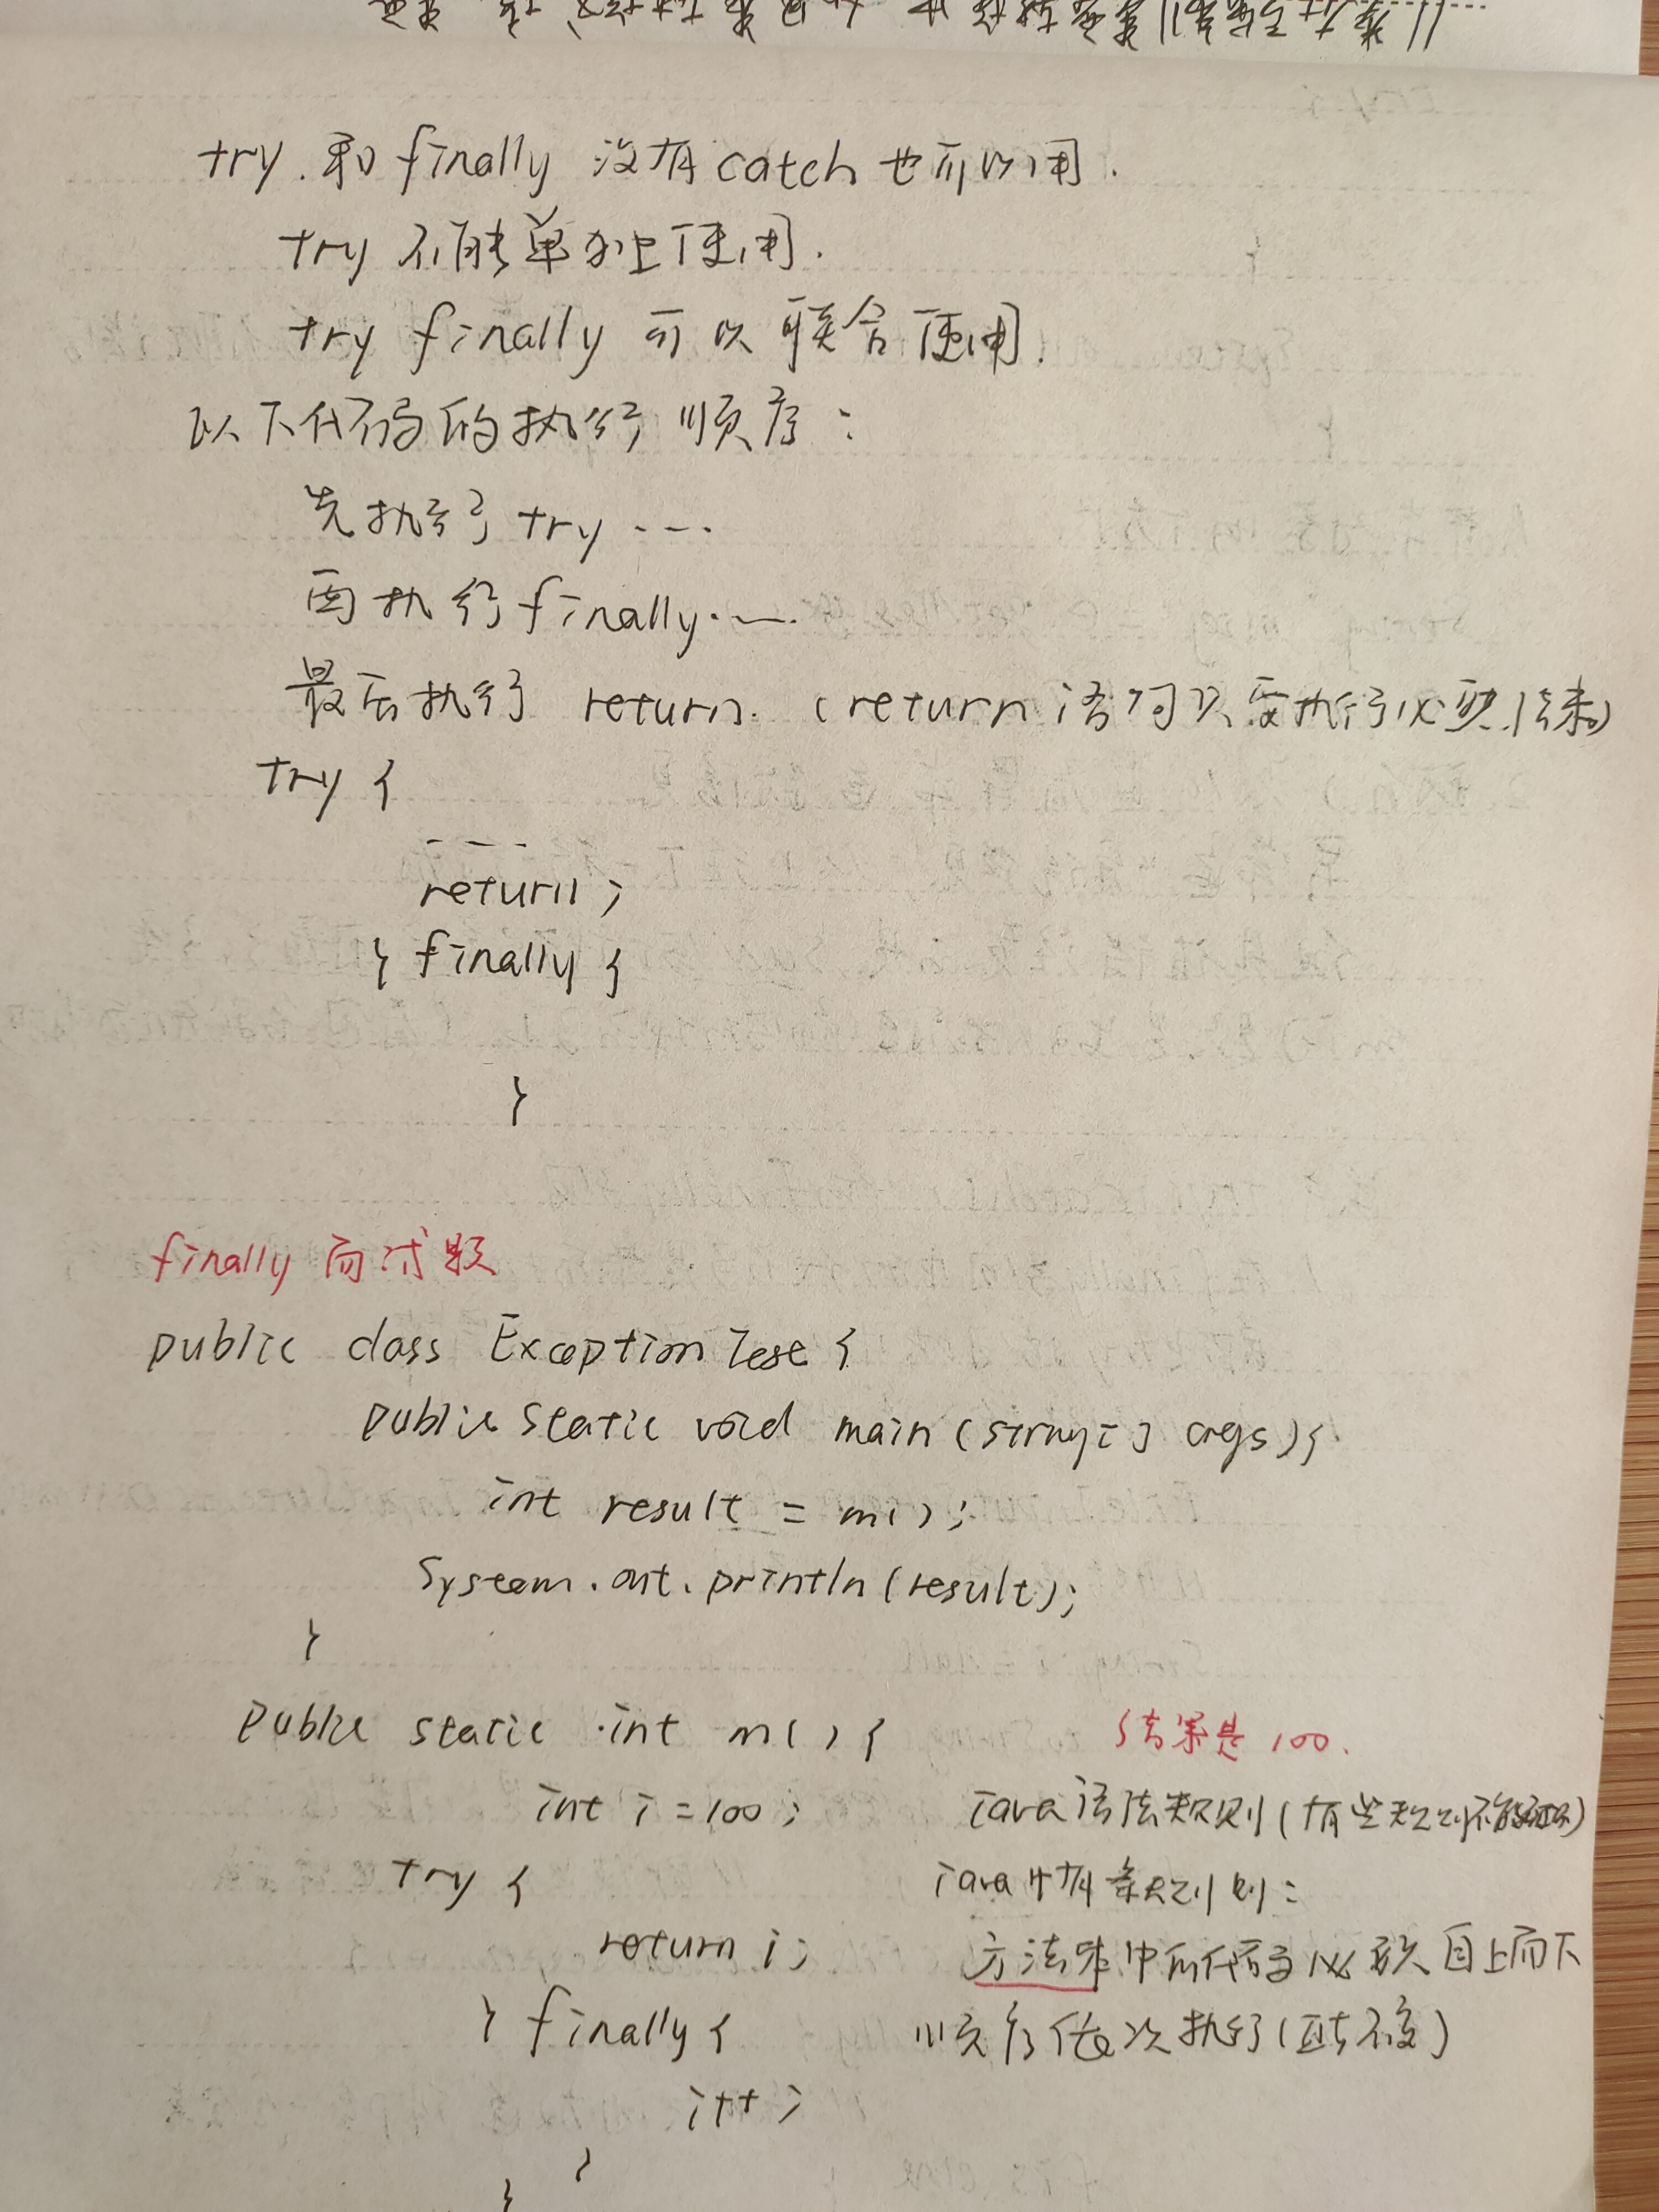 try.和finally 没有catch也可以用.
try 不能单独使用.
try finally 可以联合使用.
以下代码的执行顺序:
先执行try ....
再执行finally....
最后执行 return. (return语句只要执行必要结束)
try {
----
return;
} finally {
}
finally 面试题
public class ExceptionTest {
public static void main(String[] args){
int result = m();
System.out.println(result);
}
public static int m() {
结果是 100.
int i = 100;
java语法规则(有些规则不能)
try {
java中有条规则:
return i;
方法体中的代码必须自上而下
} finally {
顺序依次执行(亘古不变)
i++;
}
}